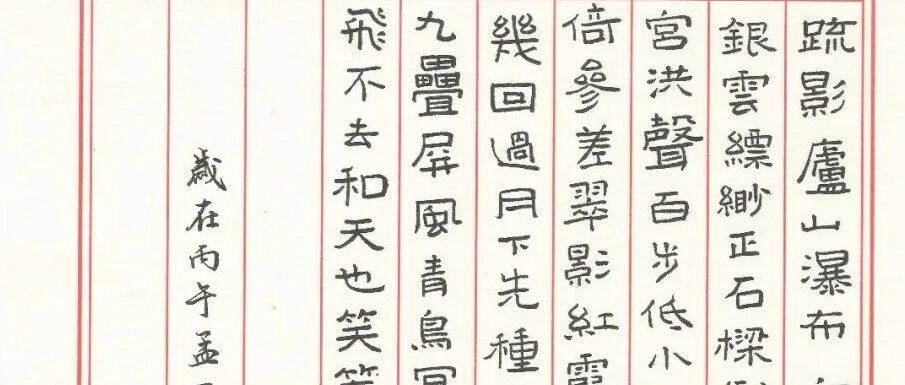 疏影廬山瀑布
銀雲縹緲正石樑
宮洪聲百步低小
倚參差翠影紅霞
幾回過月下先種
九疊屏風青鳥冥
飛不去和天也笑
歲在丙午孟